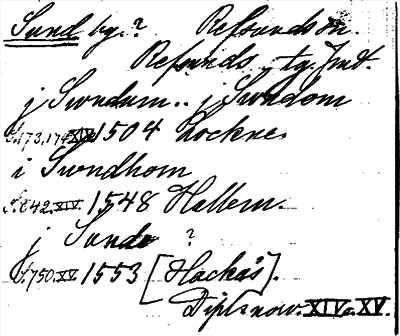 Sund by.? Refsunds sn.
Refsunds tg. Jmt.
j Swndum.. j Swndom
S.173,174 XIV 1504 Lockne.
i Swndhom
S.842.XIV. 1548 Hallem.
j Sunde ?
S.750.XV 1553 [Hackås].
Dipl. now. XIV o. XV.